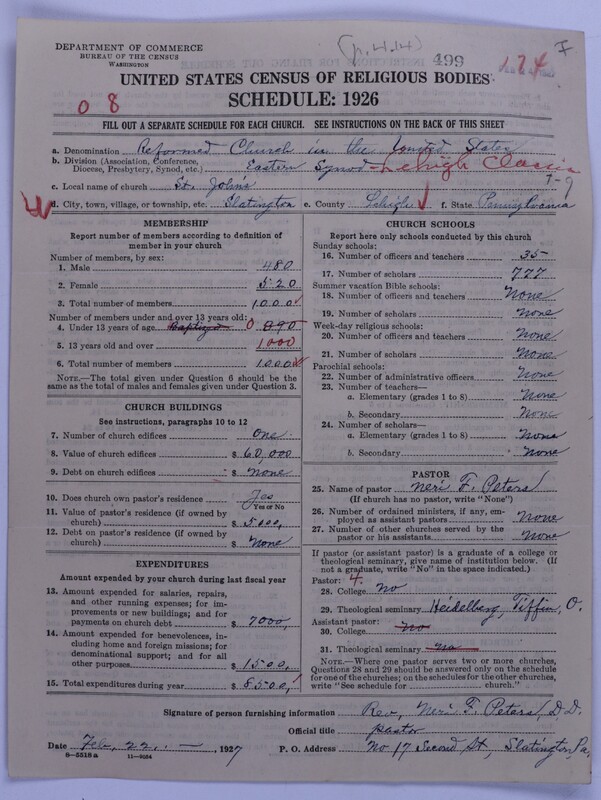 (p. 4.14)
499
174
I
DEPARTMENT OF COMMERCE
BUREAU OF THE CENSUS
WASHINGTON
UNITED STATES CENSUS OF RELIGIOUS BODIES
SCHEDULE: 1926
0 8
FILL OUT A SEPARATE SCHEDULE FOR EACH CHURCH. SEE INSTRUCTIONS ON THE BACK OF THIS SHEET
a. Denomination Reformed Church in the United States
b. Division (Association, Conference, Diocese, Presbytery, Synod, etc.) Eastern Synod - Lehigh Classis
7-9
c. Local name of church St. John's
d. City, town, village, or township, etc. Slatington e. County Lehigh f. State Pennsylvania
MEMBERSHIP
Report number of members according to definition of
member in your church
Number of members, by sex:
1. Male 480
2. Female 520
3. Total number of members 1000
Number of members under and over 13 years old:
4. Under 13 years of age Baptized 0 890
5. 13 years old and over 1000
6. Total number of members 1000
NOTE.—The total given under Question 6 should be
the same as the total of males and females given under Question 3.
CHURCH BUILDINGS
See instructions, paragraphs 10 to 12
7. Number of church edifices One
8. Value of church edifices $ 60,000
9. Debt on church edifices $ None
10. Does church own pastor's residence Yes
Yes or No
11. Value of pastor's residence (if owned by
church) $ 5000,
12. Debt on pastor's residence (if owned by
church) $ None
EXPENDITURES
Amount expended by your church during last fiscal year
13. Amount expended for salaries, repairs,
and other running expenses; for im-
provements or new buildings; and for
payments on church debt $ 7000,
14. Amount expended for benevolences, in-
cluding home and foreign missions; for
denominational support; and for all
other purposes $ 1500,
15. Total expenditures during year $ 8500,
CHURCH SCHOOLS
Report here only schools conducted by this church
Sunday schools:
16. Number of officers and teachers 35
17. Number of scholars 777
Summer vacation Bible schools:
18. Number of officers and teachers None
19. Number of scholars None
Week-day religious schools:
20. Number of officers and teachers None
21. Number of scholars None
Parochial schools:
22. Number of administrative officers None
23. Number of teachers—
a. Elementary (grades 1 to 8) None
b. Secondary None
24. Number of scholars—
a. Elementary (grades 1 to 8) None
b. Secondary None
PASTOR
25. Name of pastor Neri F. Peters
(If church has no pastor, write "None")
26. Number of ordained ministers, if any, em-
ployed as assistant pastors None
27. Number of other churches served by the
pastor or his assistants None
If pastor (or assistant pastor) is a graduate of a college or
theological seminary, give name of institution below. (If
not a graduate, write "No" in the space indicated.)
Pastor: 4.
28. College No
29. Theological seminary Heidelberg, Tiffin, O.
Assistant pastor:
30. College No
31. Theological seminary No
NOTE.—Where one pastor serves two or more churches,
Questions 28 and 29 should be answered only on the schedule
for one of the churches; on the schedules for the other churches,
write "See schedule for church."
Signature of person furnishing information Rev. Neri F. Peters, D.D.
Official title Pastor
Date Feb, 22. —, 1927 P. O. Address No 17 Second St, Slatington, Pa.
8-5518a 11-9264